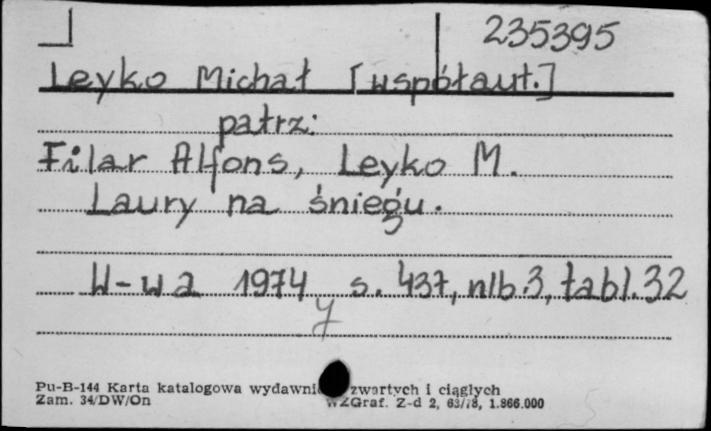 235395
Leyko Michał [współaut.]
patrz:
Filar Alfons, Leyko M.
Laury na śniegu.
W-wa 1974 s. 437, nlb. 3, tabl. 32
y
Pu-B-144 Karta katalogowa zwartych i ciągłych
Zam. 34/DW/On WZGraf. Z-d 2, 63/78, 1.866.000